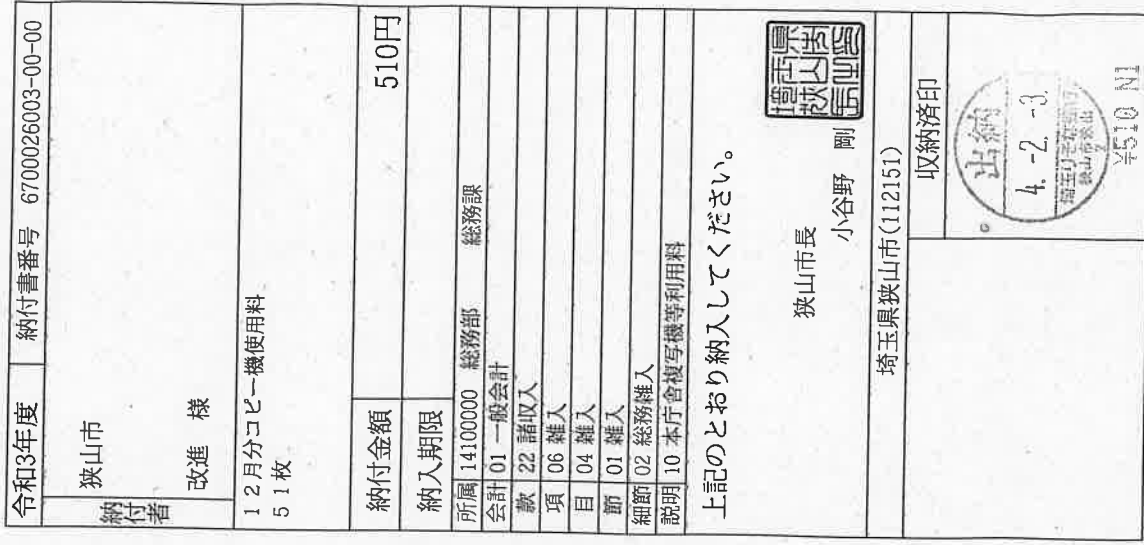 令和3年度 納付書番号 67000026003-00-00
納付者
狭山市
改進 様
12月分コピー機使用料
51枚
納付金額 510円
納入期限
所属 14100000 総務部 総務課
会計 01 一般会計
款 22 諸収入
項 06 雑入
目 04 雑入
節 01 雑入
細節 02 総務雑入
説明 10 本庁舎複写機等利用料
上記のとおり納入してください。
狭山市長
小谷野 剛
埼玉県狭山市長之印
埼玉県狭山市(112151)
収納済印
出納
4.-2.-3.
狭山市狭山
2
¥510 N1